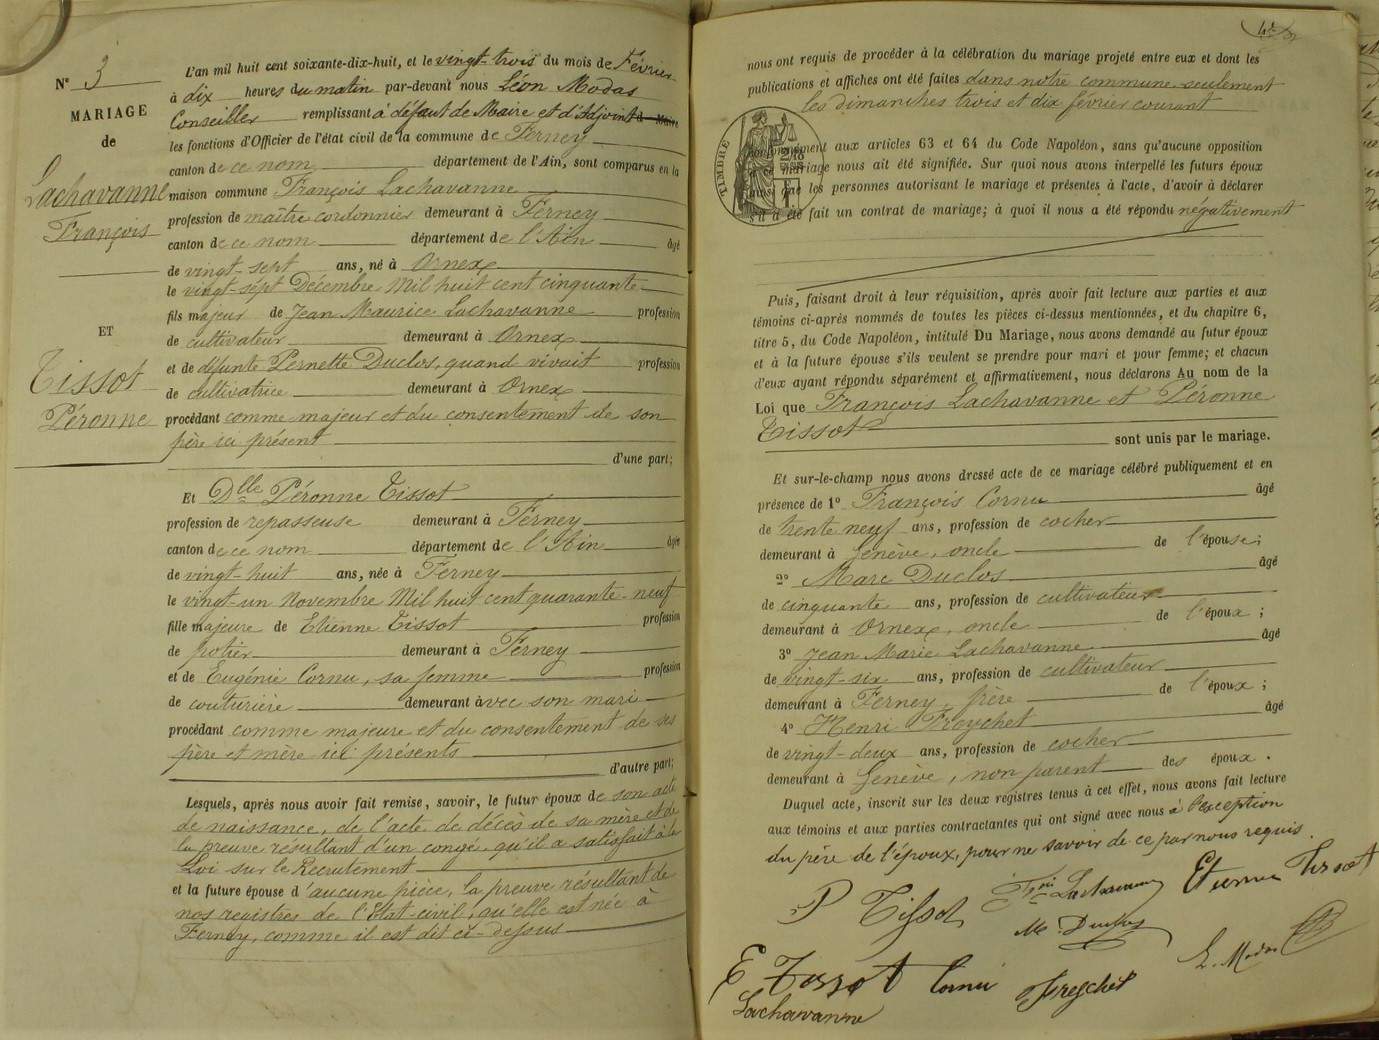 N° 3
MARIAGE
de
Lachavanne
François
ET
Tissot
Péronne
L'an mil huit cent soixante-dix-huit, et le vingt-trois du mois de Février
à dix heures du matin par-devant nous Léon Modas
Conseiller remplissant à défaut de Maire et d'Adjoint
les fonctions d'Officier de l'état civil de la commune de Ferney
canton de ce nom département de l'Ain, sont comparus en la
maison commune François Lachavanne
profession de maître cordonnier demeurant à Ferney
canton de ce nom département de l'Ain âgé
de vingt-sept ans, né à Ornex
le vingt-sept Décembre Mil huit cent cinquante
fils majeur de Jean Maurice Lachavanne profession
de cultivateur demeurant à Ornex
et de défunte Pernette Duclos, quand vivait profession
de cultivatrice demeurant à Ornex
procédant comme majeur et du consentement de son
père ici présent
d'une part;
Et Dlle Péronne Tissot
profession de repasseuse demeurant à Ferney
canton de ce nom département de l'Ain âgée
de vingt-huit ans, née à Ferney
le vingt-un Novembre Mil huit cent quarante-neuf
fille majeure de Etienne Tissot profession
de potier demeurant à Ferney
et de Eugénie Cornu, sa femme profession
de couturière demeurant avec son mari
procédant comme majeure et du consentement de ses
père et mère ici présents
d'autre part;
Lesquels, après nous avoir fait remise, savoir, le futur époux de son acte
de naissance, de l'acte de décès de sa mère et de
la preuve résultant d'un congé qu'il a satisfait à la
Loi sur le Recrutement
et la future épouse d'aucune pièce, la preuve résultant de
nos registres de l'Etat-civil, qu'elle est née à
Ferney, comme il est dit ci-dessus
nous ont requis de procéder à la célébration du mariage projeté entre eux et dont les
publications et affiches ont été faites dans notre commune seulement
les dimanches trois et dix février courant
TIMBRE
aux articles 63 et 64 du Code Napoléon, sans qu'aucune opposition
mariage nous ait été signifiée. Sur quoi nous avons interpellé les futurs époux
ainsi que les personnes autorisant le mariage et présentes à l'acte, d'avoir à déclarer
s'il a été fait un contrat de mariage; à quoi il nous a été répondu négativement
Puis, faisant droit à leur réquisition, après avoir fait lecture aux parties et aux
témoins ci-après nommés de toutes les pièces ci-dessus mentionnées, et du chapitre 6,
titre 5, du Code Napoléon, intitulé Du Mariage, nous avons demandé au futur époux
et à la future épouse s'ils veulent se prendre pour mari et pour femme; et chacun
d'eux ayant répondu séparément et affirmativement, nous déclarons Au nom de la
Loi que François Lachavanne et Péronne
Tissot
sont unis par le mariage.
Et sur-le-champ nous avons dressé acte de ce mariage célébré publiquement et en
présence de 1° François Cornu âgé
de trente neuf ans, profession de cocher
demeurant à Genève, oncle de l'épouse;
2° Marc Duclos âgé
de cinquante ans, profession de cultivateur
demeurant à Ornex, oncle de l'époux;
3° Jean Marie Lachavanne âgé
de vingt-six ans, profession de cultivateur
demeurant à Ferney, frère de l'époux;
4° Henri Freychet âgé
de vingt-deux ans, profession de cocher
demeurant à Genève, non parent des époux.
Duquel acte, inscrit sur les deux registres tenus à cet effet, nous avons fait lecture
aux témoins et aux parties contractantes qui ont signé avec nous à l'exception
du père de l'époux, pour ne savoir de ce par nous requis.
P Tissot Lachavanne Etienne Tissot
Mc Duclos
L. Modas
E Tissot Cornu Freychet
Lachavanne